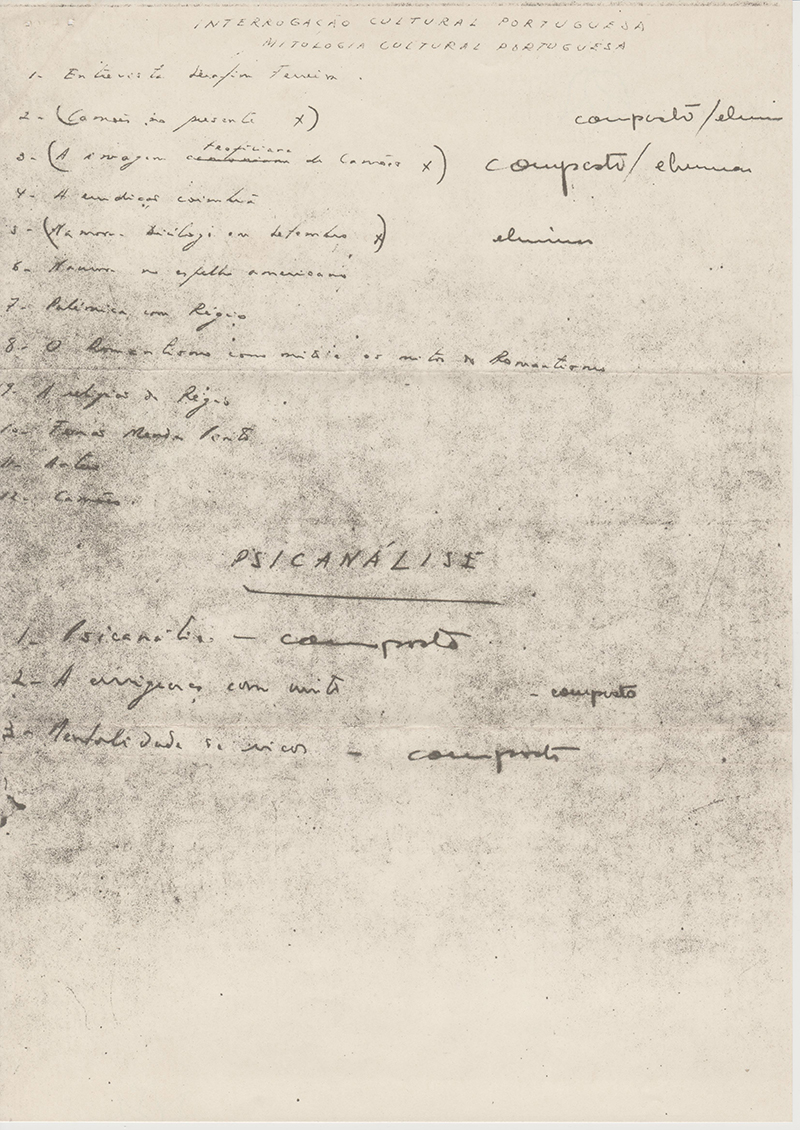 INTERROGAÇÃO CULTURAL PORTUGUESA
MITOLOGIA CULTURAL PORTUGUESA
1- Entrevista Serafim Ferreira.
2- (Camões no presente x) composto/elimin
3- (A imagem Teofiliana de Camões x) composto/eliminar
4- A erudição coimbrã
5- (Namora - Diálogo em Setembro x) eliminar
6- Namora no espelho americano
7- Polémica com Régio
8- O Romantismo como mito e os mitos do Romantismo
9- A religião de Régio
10- Fernão Mendes Pinto
11- Antero
12- Camões.
PSICANÁLISE
1- Psicanálise - composto
2- A como mito - composto
3- Mentalidade - composto